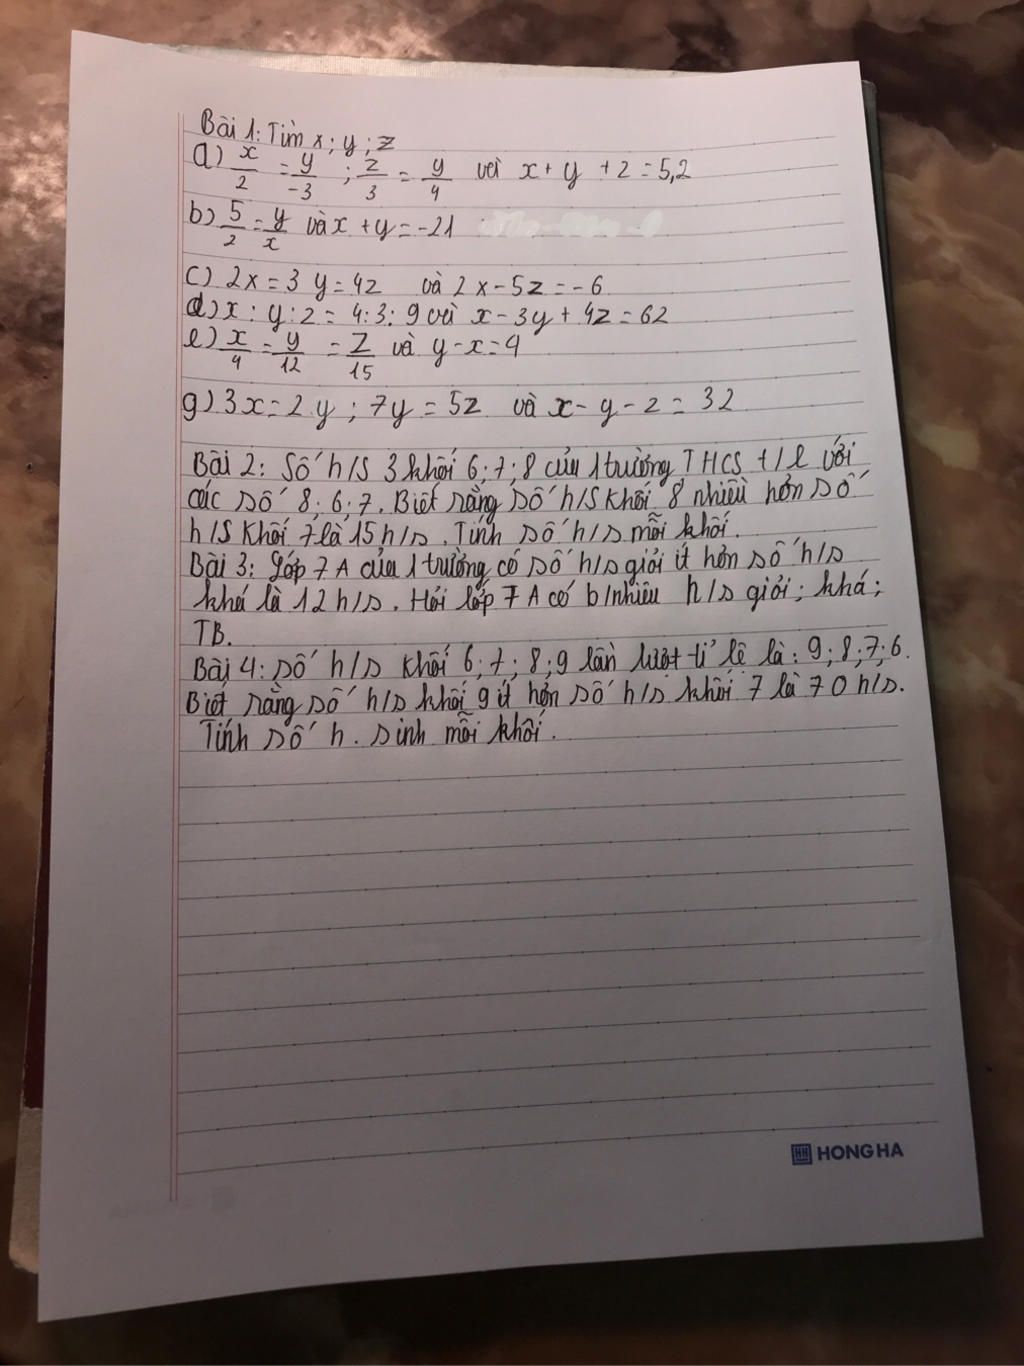 Bài 1: Tìm x; y; z
a) x/2 = y/-3 ; z/3 = y/4 với x + y + z = 5,2
b) 5/2 = y/x và x + y = -21
c) 2x = 3y = 4z và 2x - 5z = -6
d) x : y : z = 4 : 3 : 9 với x - 3y + 4z = 62
e) x/4 = y/12 = z/15 và y - x = 4
g) 3x = 2y ; 7y = 5z và x - y - z = 32
Bài 2: Số h/s 3 khối 6; 7; 8 của 1 trường THCS t/l với
các số 8; 6; 7. Biết rằng số h/s khối 8 nhiều hơn số
h/s khối 7 là 15 h/s. Tính số h/s mỗi khối.
Bài 3: Lớp 7A của 1 trường có số h/s giỏi ít hơn số h/s
khá là 12 h/s. Hỏi lớp 7A có b/nhiêu h/s giỏi; khá;
TB.
Bài 4: số h/s khối 6; 7; 8; 9 lần lượt tỉ lệ là: 9; 8; 7; 6.
Biết rằng số h/s khối 9 ít hơn số h/s khối 7 là 70 h/s.
Tính số h. sinh mỗi khối.
HH HONG HA